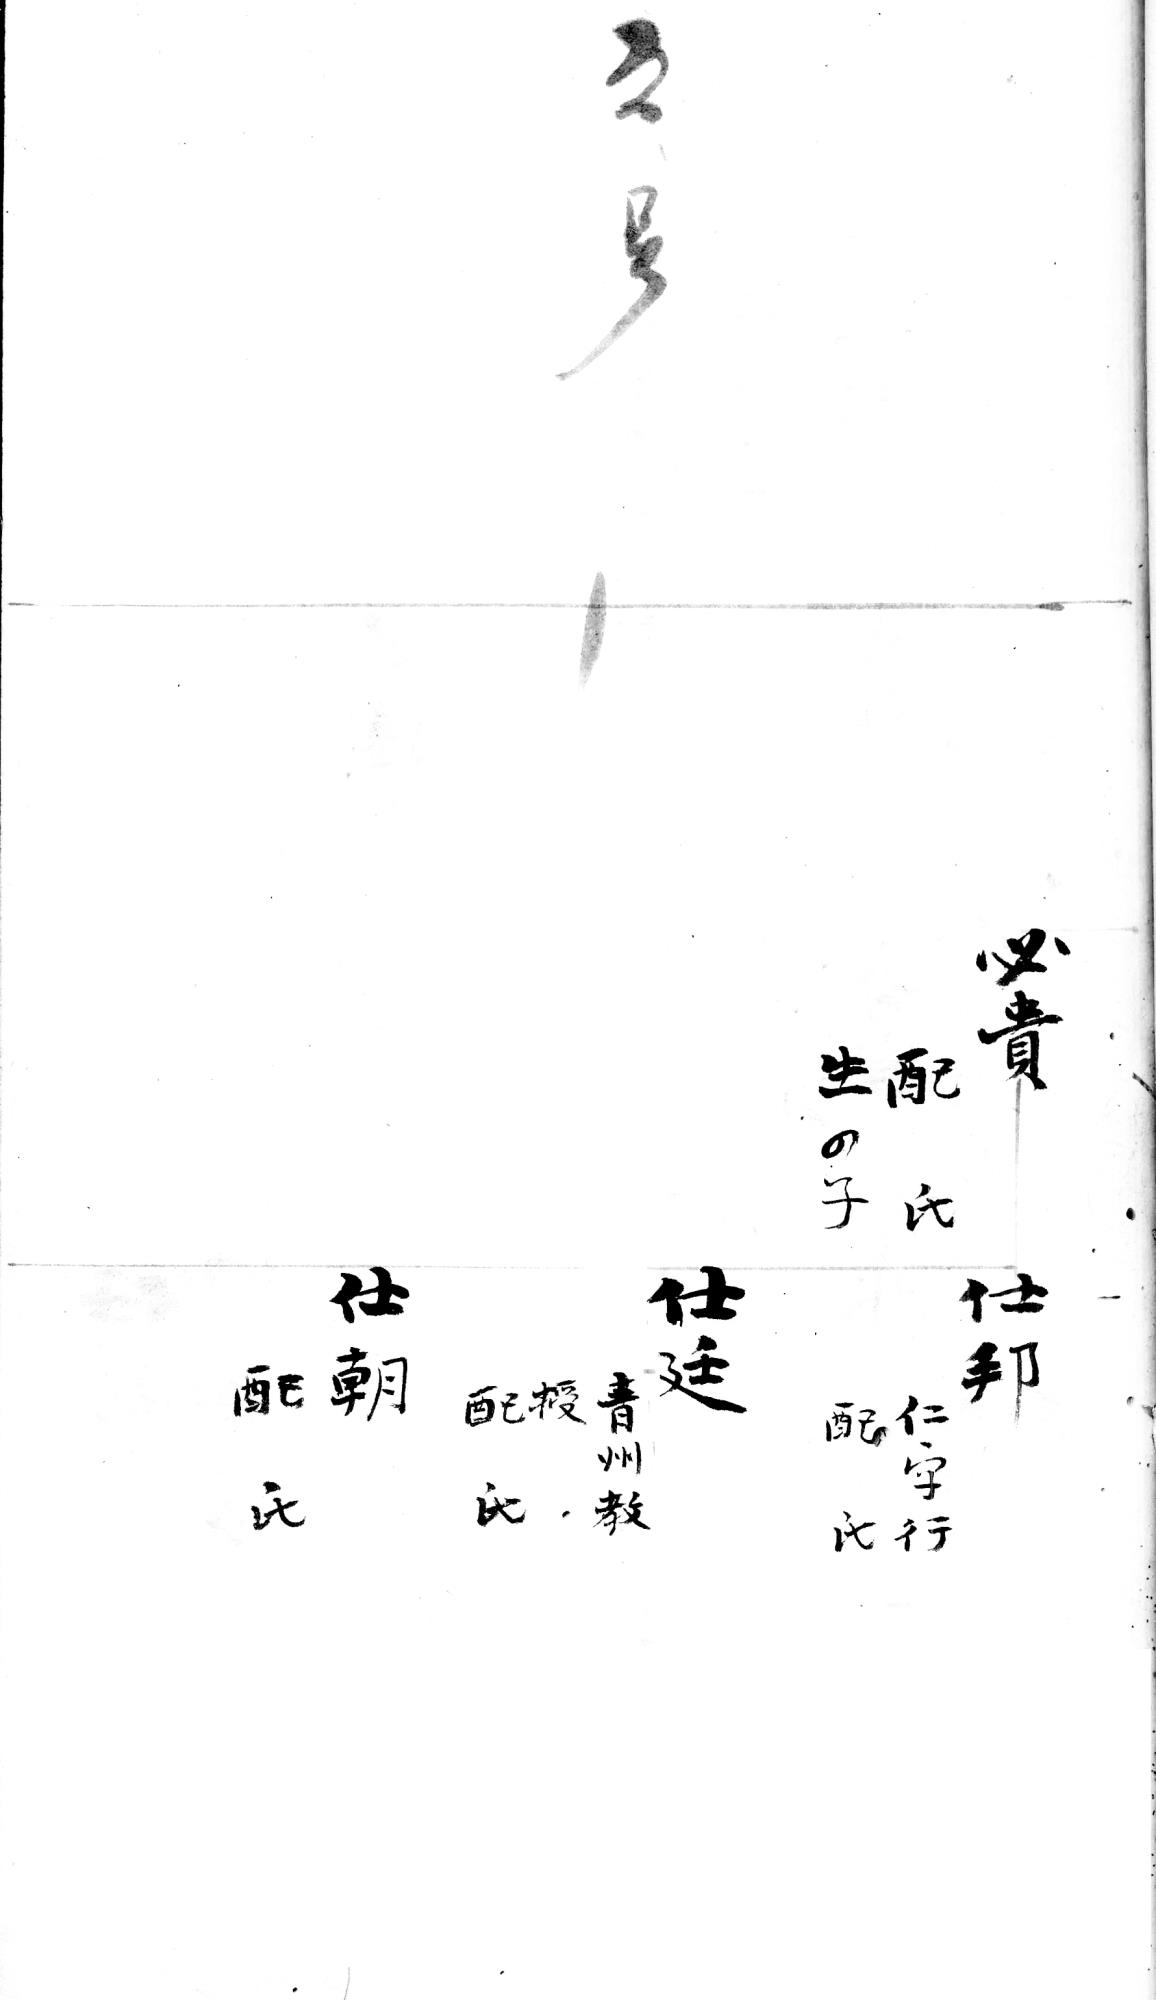 五号
必貴
配 氏
生四子
仕邦
仁字行
配 氏
仕廷
青州教
授
配 氏
仕朝
配 氏